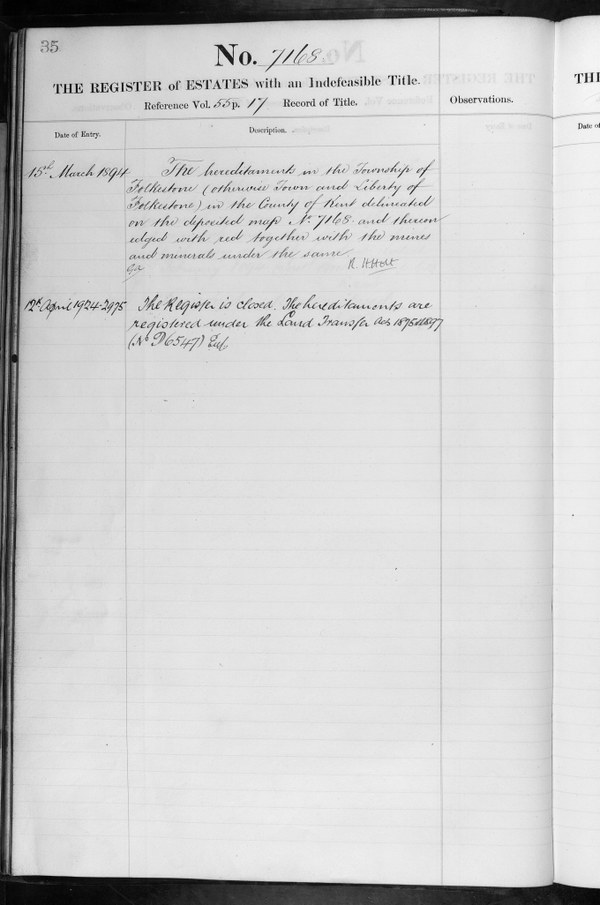 35
No. 7168
THE REGISTER of ESTATES with an Indefeasible Title.
Reference Vol. 55 p. 17 Record of Title.
Observations.
Date of Entry.
Description.
15th March 1894
The hereditaments in the Township of
Folkestone (otherwise Town and Liberty of
Folkestone) in the County of Kent delineated
on the deposited map No. 7168 and thereon
edged with red together with the mines
and minerals under the same
12th April 1924-2975
The Register is closed. The hereditaments are
registered under the Land Transfer Acts 1875 & 1897
(No P6547)
TH
Date of